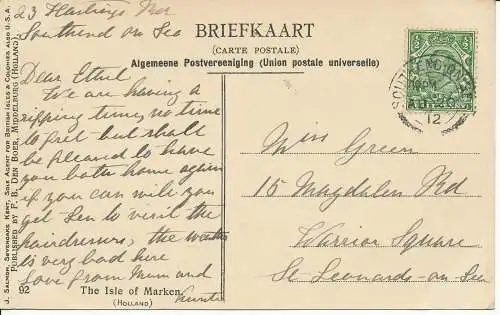 23 Hastings
Southend on Sea
Dear Ethel
We are having a
ripping time, no time
to fret but shall
be pleased to have
you both home again
if you will you
get Len to visit the
hairdressers, the weather
is very bad here
love from Mum and
BRIEFKAART
(CARTE POSTALE)
Algemeene Postvereeniging (Union postale universelle)
SOUTHEND
AU 26
12
Miss Green
15 Magdalen Rd
Warrior Square
St Leonards-on Sea
J. Salmon, Sevenoaks, Kent, Sole Agent for British Isles & Colonies also U.S.A.
Published by F. B. den Boer, Middelburg (Holland).
92 The Isle of Marken.
(Holland)